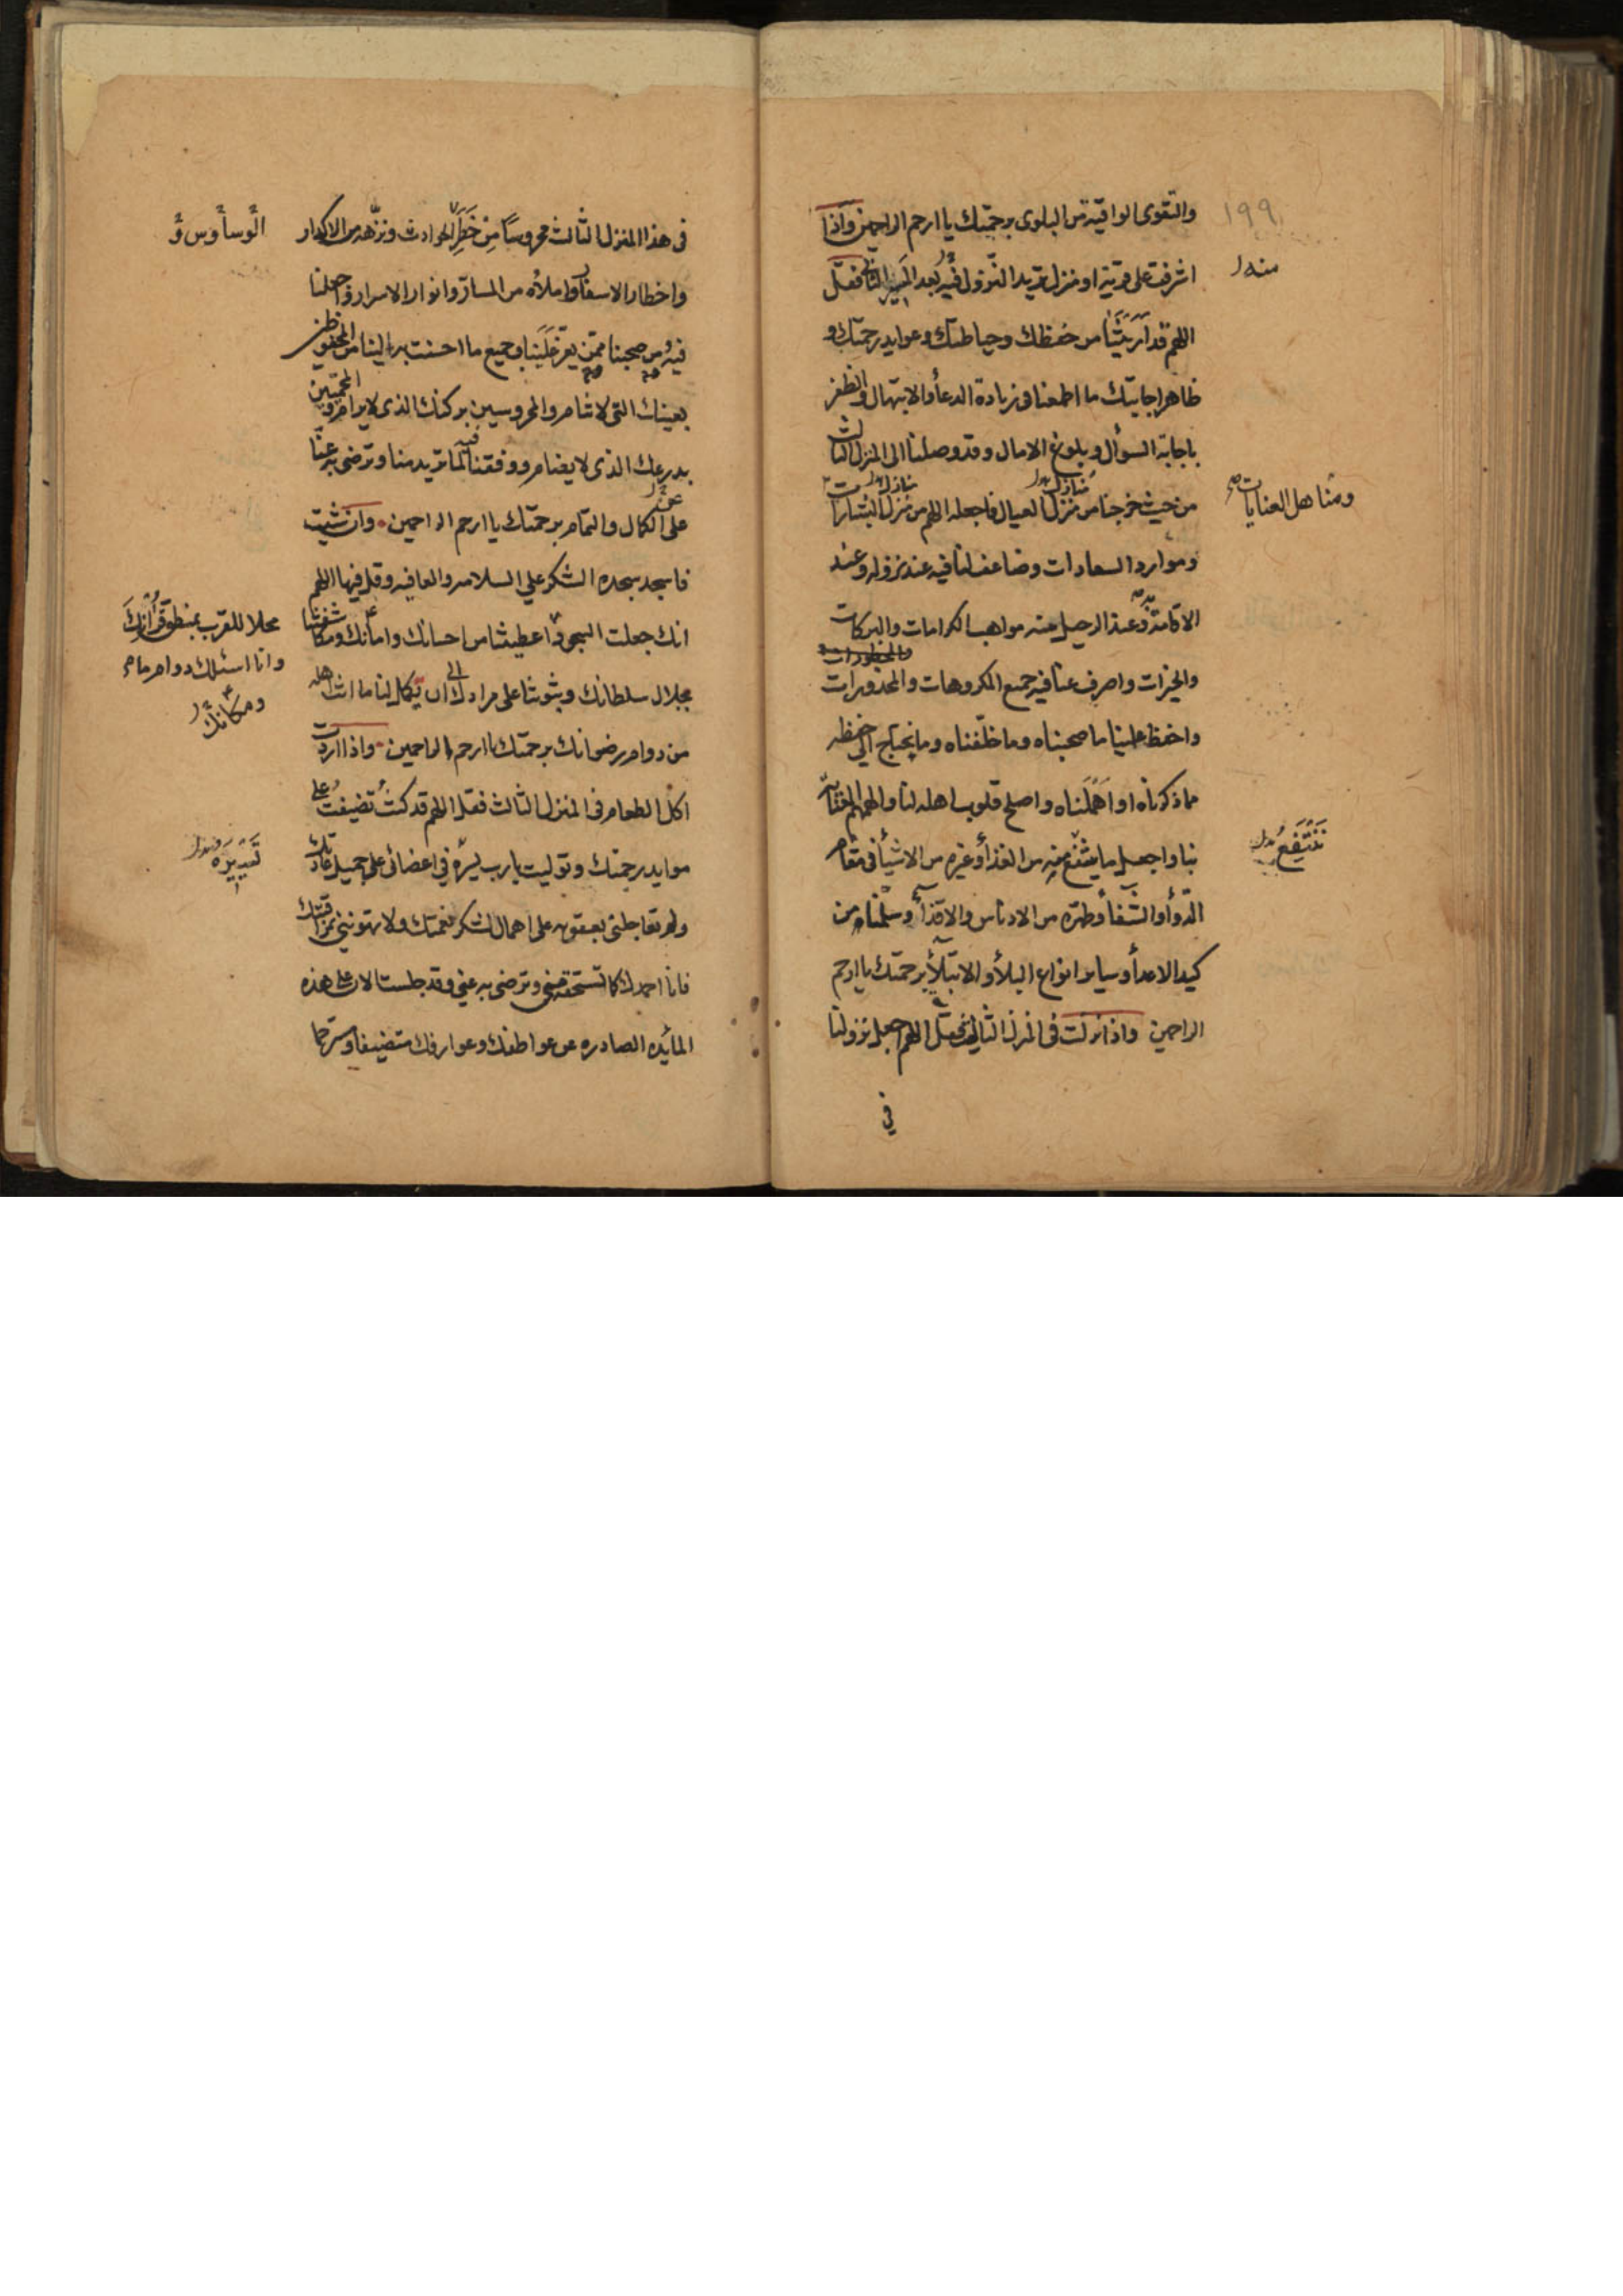 ١٩٩
والتقوى الواقية من البلوى برحمتك يا ارحم الراحمين واذا
اشرفت على قرية او منزل تريد النزول فيه بعد المسير الثالث فقل
منه
اللهم قد اريتنا من حفظك وحياطتك وعوايد رحمتك و
ظاهر اجابتك ما اطمعنا فى زيادة الدعأ والابتهال والظفر
باجابة السوأل وبلوغ الامال وقد وصلنا الى المنزل الثالث
من حيث خرجنا من منزل العيال فاجعله اللهم من منزل البشارات
منازل
منازل
ومناهل العنايات
وموارد السعادات وضاعف لنا فيه عند نزوله وعند
الاقامة وعند الرحيل منه مواهب الكرامات والبركات
والخيرات واصرف عنا فيه جميع المكروهات والمحذورات
والمحظورات
واحفظ علينا ما صحبناه وما خلفناه وما يحتاج الى حفظه
مما ذكرناه او اهملناه واصلح قلوب اهله لنا والهمهم العناية
بنا واجعل ما ينتفع به من الغذأ وغيره من الاشيأ فى مقام
ننتفع
الدوأ والشفأ وطهره من الادناس والاقذأ وسلمنا من
كيد الاعدأ وساير انواع البلأ والابتلأ برحمتك يا ارحم
الراحمين واذا نزلت فى المنزل الثالث فقل اللهم اجعل نزولنا
فى
فى هذا المنزل الثالث محروسا من خطر الحوادث ونزهه من الاكدار
الوساوس و
واخطار الاسفار واملأه من المسار وانوار الاسرار واجعلنا
فيه ومن صحبنا ممن يعز علينا وجميع ما احسنت به الينا من المحفوظين
بعينك التى لا تنام والمحروسين بركنك الذى لا يرام و المحميين
بدرعك الذى لا يضام ووفقنا فيه لما تريد منا وترضى به عنا
على الكمال والتمام برحمتك يا ارحم الراحمين وان شئت
فاسجد سجده الشكر على السلامه والعافيه وقل فيها اللهم
انك جعلت السجود اعطيتنا من احسانك وامانك و
محلا للقرب بمنطوق قرأنك
وانا اسئلك دوام ما
ومكانك
بجلال سلطانك وبثوتنا على مرادك الى ان تكمل لنا ما انت اهله
من دوام رضوانك برحمتك يا ارحم الراحمين واذا اردت
اكل الطعام فى المنزل الثالث فقل اللهم قد كنت تضيفت على
موايد رحمتك وتوليت يا رب فى اعضائى على جميل عادتك
تسييره
ولم تعاجلنى بعقوبه على اهمال لشكر نعمتك ولا تهوينى بمراقبتك
فانا احمدك كما تستحقه منى وترضى به عنى وقد جلست الان على هذه
المائده الصادره عن عواطفك وعوارفك متضيفا ومسترحما